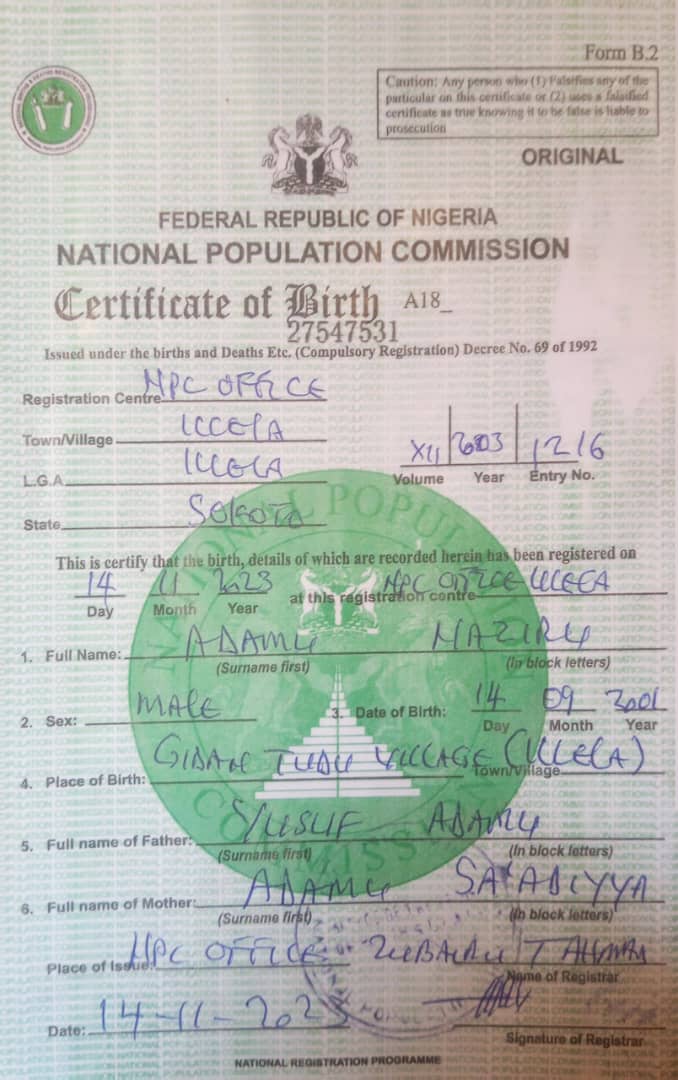 Form B.2
Caution: Any person who (1) Falsifies any of the
particular on this certificate or (2) uses a falsified
certificate as true knowing it to be false is liable to
prosecution
ORIGINAL
FEDERAL REPUBLIC OF NIGERIA
NATIONAL POPULATION COMMISSION
Certificate of Birth A18_
27547531
Issued under the births and Deaths Etc. (Compulsory Registration) Decree No. 69 of 1992
Registration Centre NPC OFFICE
Town/Village ILLELA
L.G.A. ILLELA
XII 2003 1216
Volume Year Entry No.
State SOKOTO
This is certify that the birth, details of which are recorded herein has been registered on
14 11 2023 at this registration centre NPC OFFICE ILLELA
Day Month Year
1. Full Name: ADAMU NAZIRU
(Surname first) (In block letters)
2. Sex: MALE 3. Date of Birth: 14 09 2001
Day Month Year
4. Place of Birth: GIDAN TUDU VILLAGE (ILLELA)
Town/Village
5. Full name of Father: ADAMU
(Surname first) (In block letters)
6. Full name of Mother: ADAMU SA'ADIYYA
(Surname first) (In block letters)
Place of Issue: NPC OFFICE ZUBAIRU T
Name of Registrar
Date: 14-11-2023
Signature of Registrar
NATIONAL REGISTRATION PROGRAMME
NATIONAL POPULATION COMMISSION